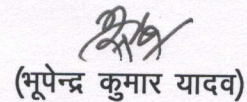 (भूपेन्द्र कुमार यादव)